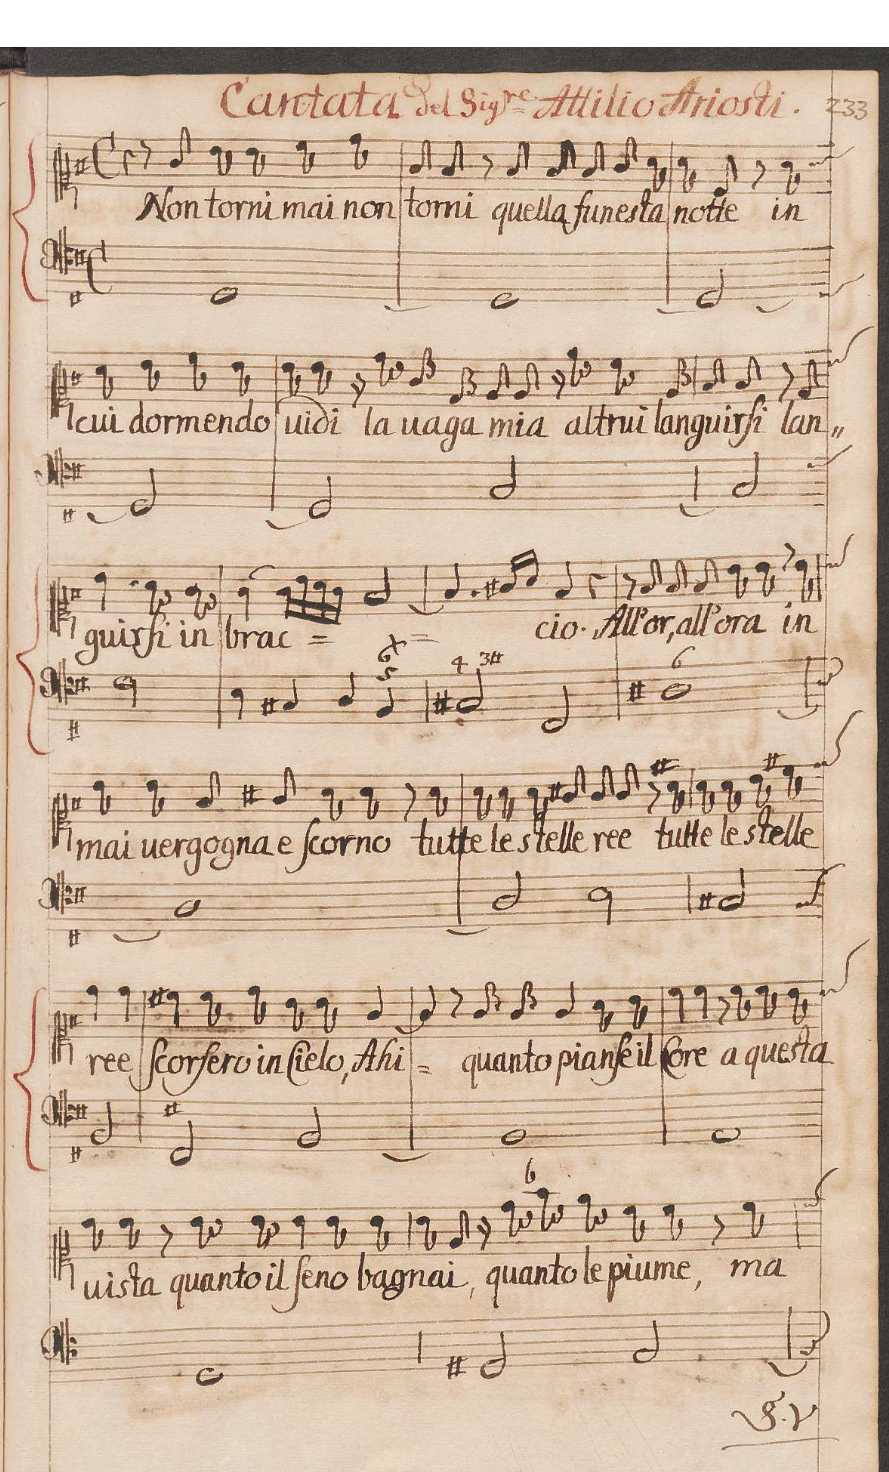 Cantata del Sig.re Attilio Ariosti. 233
Non torni mai non torni quella funesta notte in
cui dormendo uidi la uaga mia altrui languirsi lan„
4 3#
guirsi in brac = = cio. All'or, all'ora in
6
mai uergogna e scorno tutte le stelle ree tutte le stelle
ree scorsero in Cielo, Ahi = quanto pianse il Core a questa
6
uista quanto il seno bagnai, quanto le piume, ma